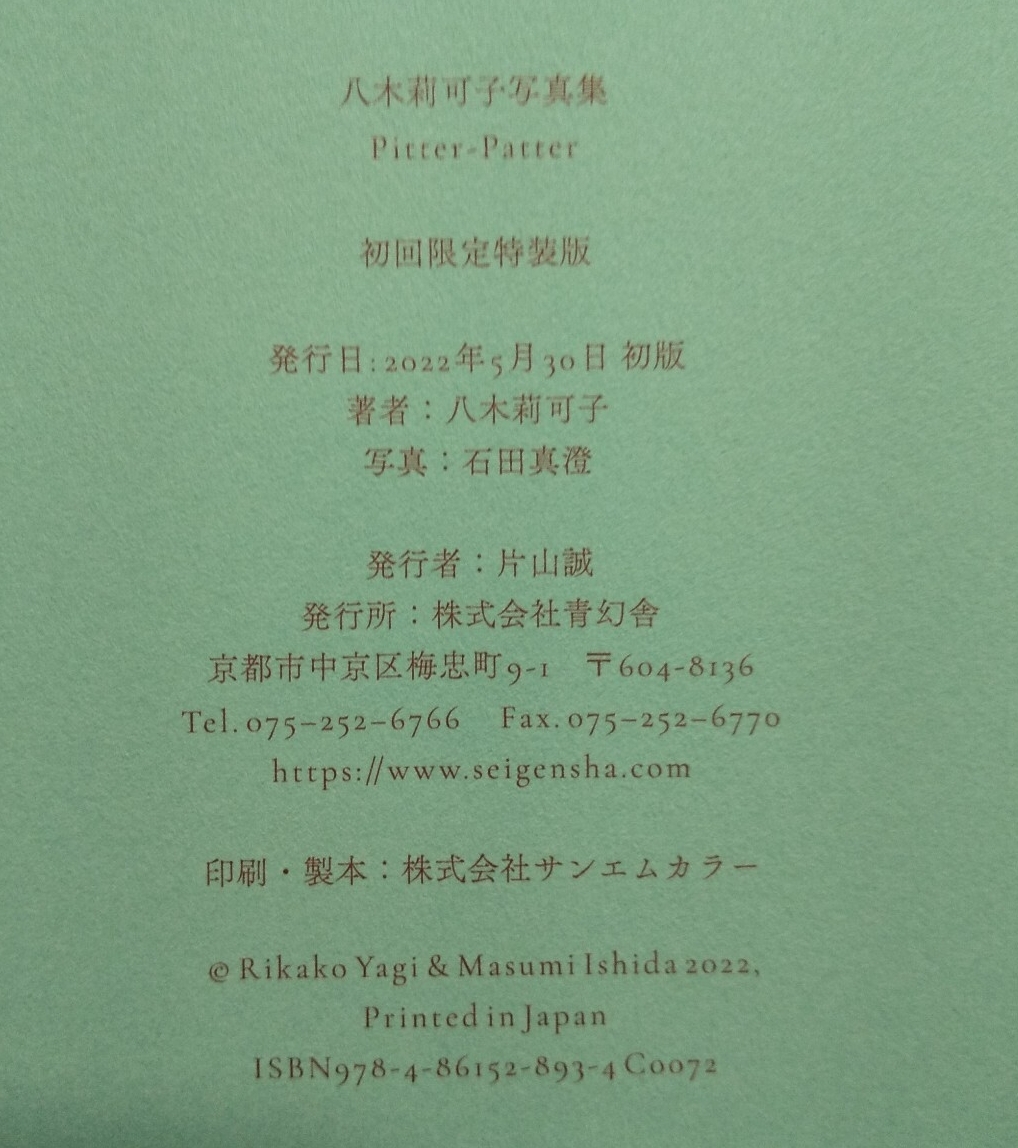 八木莉可子写真集
Pitter-Patter
初回限定特装版
発行日:2022年5月30日 初版
著者：八木莉可子
写真：石田真澄
発行者：片山誠
発行所：株式会社青幻舎
京都市中京区梅忠町9-1　〒604-8136
Tel. 075–252–6766　Fax. 075–252–6770
https://www.seigensha.com
印刷・製本：株式会社サンエムカラー
© Rikako Yagi & Masumi Ishida 2022,
Printed in Japan
ISBN978-4-86152-893-4 C0072